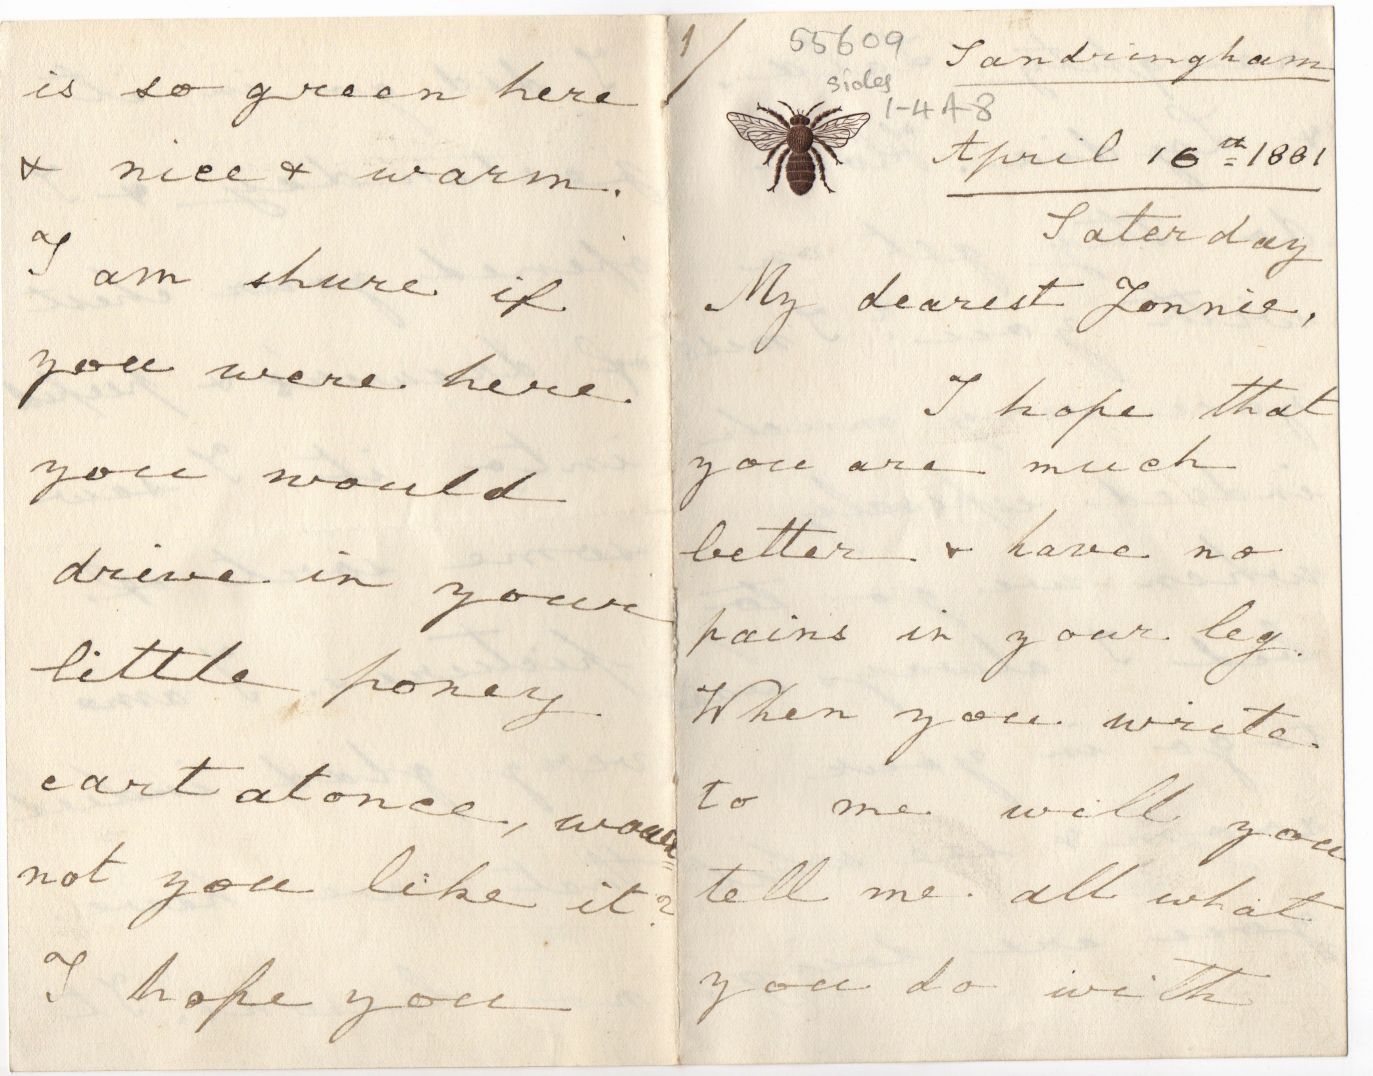 1/
55609
sides
1-4 A-8
Sandringham
April 16th 1881
Saterday
My dearest Zonnie,
I hope that
you are much
better & have no
pains in your leg.
When you write
to me will you
tell me all what
you do with
is so green here
& nice & warm.
I am shure if
you were here
you would
drive in your
little poney
cart atonce, would
not you like it?
I hope you